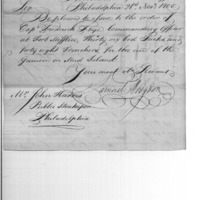 Philadelphia 21st Nov. 1806
Sir
Be pleased to issue to the order of
Capt. Frederick Commanding Officer
at Fort Mifflin Thirty six Bed Sacks and
forty eight Blankets for the use of
the Garrison on Mud Island
Your most Ob. Servant
Samuel
Mr. John Harris
Public Storekeeper
Philadelphia